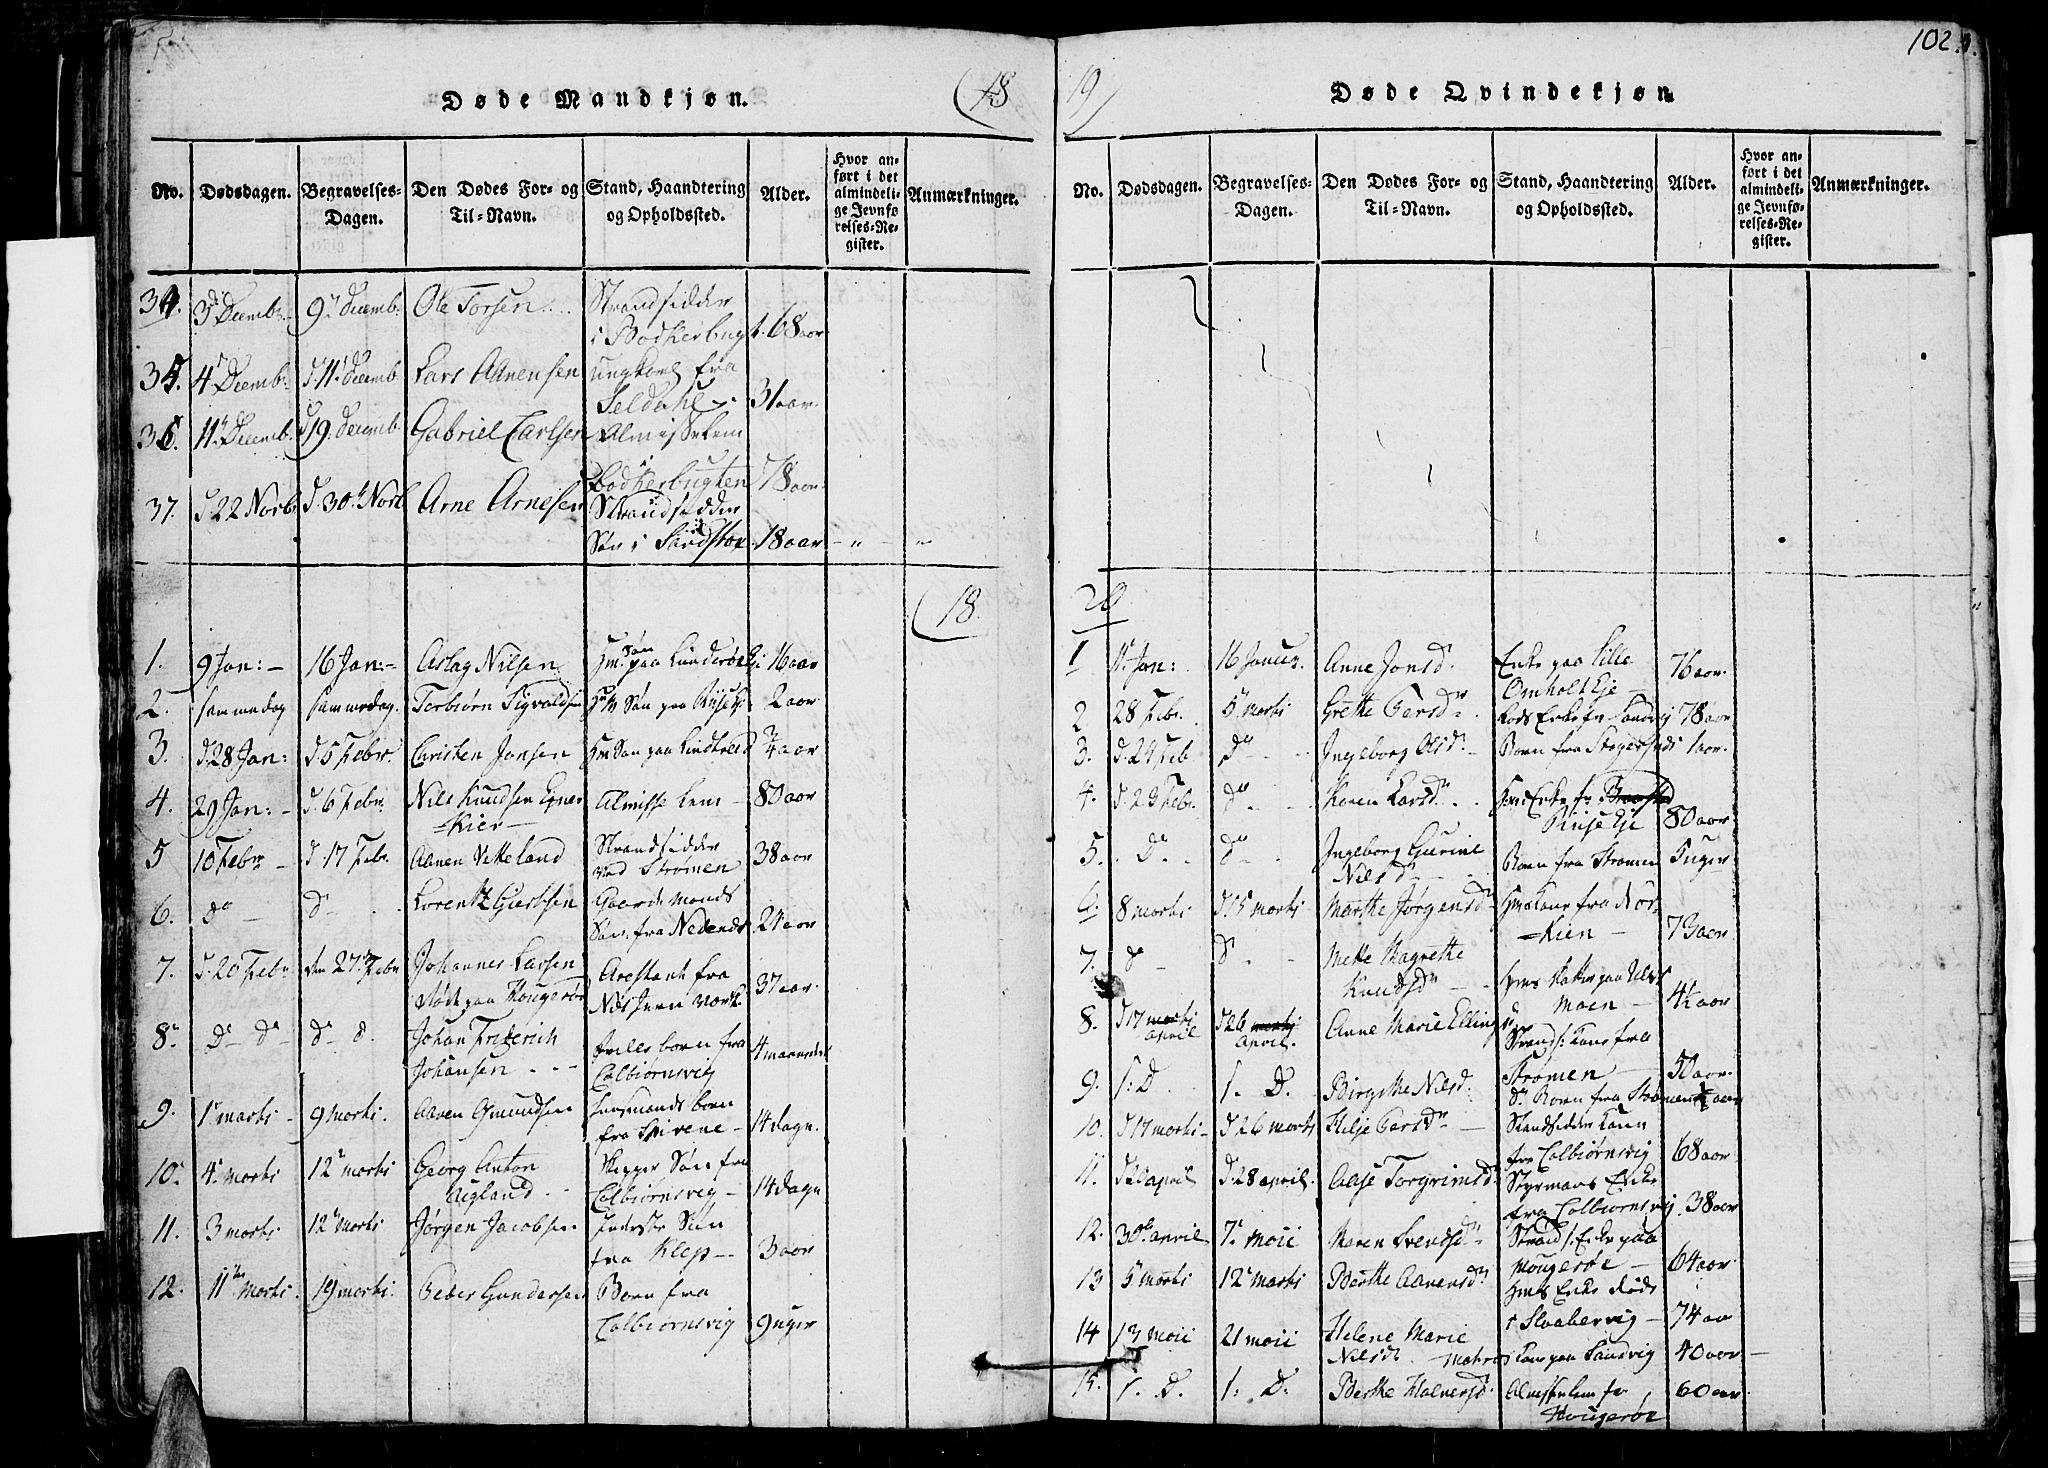 102.
Døde Mandkjøn.
(18
No.
Dødsdagen.
Begravelses-
Dagen.
Den Dødes For- og
Til-Navn.
Stand, Haandtering
og Opholdssted.
Alder.
Hvor an-
ført i det
almindeli-
ge Jevnfø-
relses-Re-
gister.
Anmærkninger.
34. 3 Decemb. 9 Decemb. Ole Torsen Strandsidder
i Bodkerbugt. 68 aar
35. 4 Decemb. d. 11 Decemb Lars Aanensen ungkarl fra
Seldahl 31 aar.
36. 11 Decemb. d 19 Decemb. Gabriel Carlsen Almisselem
i Bodkerbugten 78 aar
37. d. 22 Novb d. 30 Novb Arne Arnesen Strandsidder
Søn i 18 aar
(18.
1. 9 Jan: 16 Jan: Aslag Nilsen Hm. Søn paa 16 aar
2. sammedag sammedag. Torbiørn Sigvaldsen Hm Søn paa Riise 2 aar
3. d. 28 Jan: d 5 Febr. Christen Jansen Hm Søn paa 3/4 aar
4. 29 Jan: d. 6 Febr. Nils Knudsen Egner
=Kier Almisse Lem 80 aar
5 10 Febr d. 17 Febr. Aanen Vikeland Strandsidder
ved Strømen 38 aar
6. do do Lorentz Giertsen Gaardmands
Søn fra Nedenes 24 aar
7. d. 20 Febr den 27 Febr Johannes Larsen
død paa Hougerøe Arestant fra
Næs Jern Værk 37 aar.
8. do do do do Johan Friderich
Johansen born fra
Colbiørnsvig 4 maaneder
9. 1 marti 9 marti. Aanen Gmundsen born
fra 14 dage.
10. 4 marti 12 marti Georg Anton
Augland Skipper Søn fra
Colbiørnsvig 14 dage
11. 3 marti 12 Marti Jørgen Jacobsen Inderste Søn
fra Klep 3 aar
12. 11 Marti 19 marti. Peder Gundersen Barn fra
Colbiørnsvig 9 uger
19)
Døde Qvindekjøn
No.
Dødsdagen.
Begravelses-
Dagen.
Den Dødes For- og
Til-Navn.
Stand, Haandtering
og Opholdssted.
Alder.
Hvor an-
ført i det
almindeli-
ge Jevnfø-
relses-Re-
gister.
Anmærkninger.
20
1 Jan: 16 Janu Anne Jonsd. Enke paa Lille
Omholt Eje 76 aar.
2 28 Febr. 5 marti Grethe Larsd Enke fr Sandvig 78 aar
3. d. 29 Feb do Ingeborg Olsd Barn fra 1 aar.
4. d. 29 Feb. do Karen Larsd Enke fr
Riise Eje 80 aar
5. do do Ingeborg Gurine
Nilsd Barn fra Strømen 5 uger
6. 8 marti d 15 marti Marthe Jørgensd Hms Kone fra
=Kien 79 aar
7. do do Mette Magrethe
Knudsd Hms datter paa
Moen 4 1/2 aar
8. d 17 april d 26 april. Anne Marie Ellingsd Strands: Kone fra
Strømen 50 aar.
9. 1: D. 1. D. Birgithe Nilsd. do Barn fra Strømen 1/2 aar
10. d 17 marti d 26 marti Silje Larsd Strandsidder Kone
fra Colbiørnsvig 68 aar
11. d 20 april d. 28 april. Aase Torgrimsd Styrmans Enke
fra Colbiornsvig. 38 aar
12. 30 april 7 Maii Maren Svendsd Strands: Enke paa
Hougerøe 64 aar.
13 5 marti 12 marti Berthe Aanensd Hms Enke død
i Slaabervig 74 aar
14 13 Maii 21 maii Helene Marie
Nilsd Matros Kone paa Sandvig 40 aar
15. 1. D. 1: D. Berthe Halversd. Almisselem fr
Hougerøe 60 aar